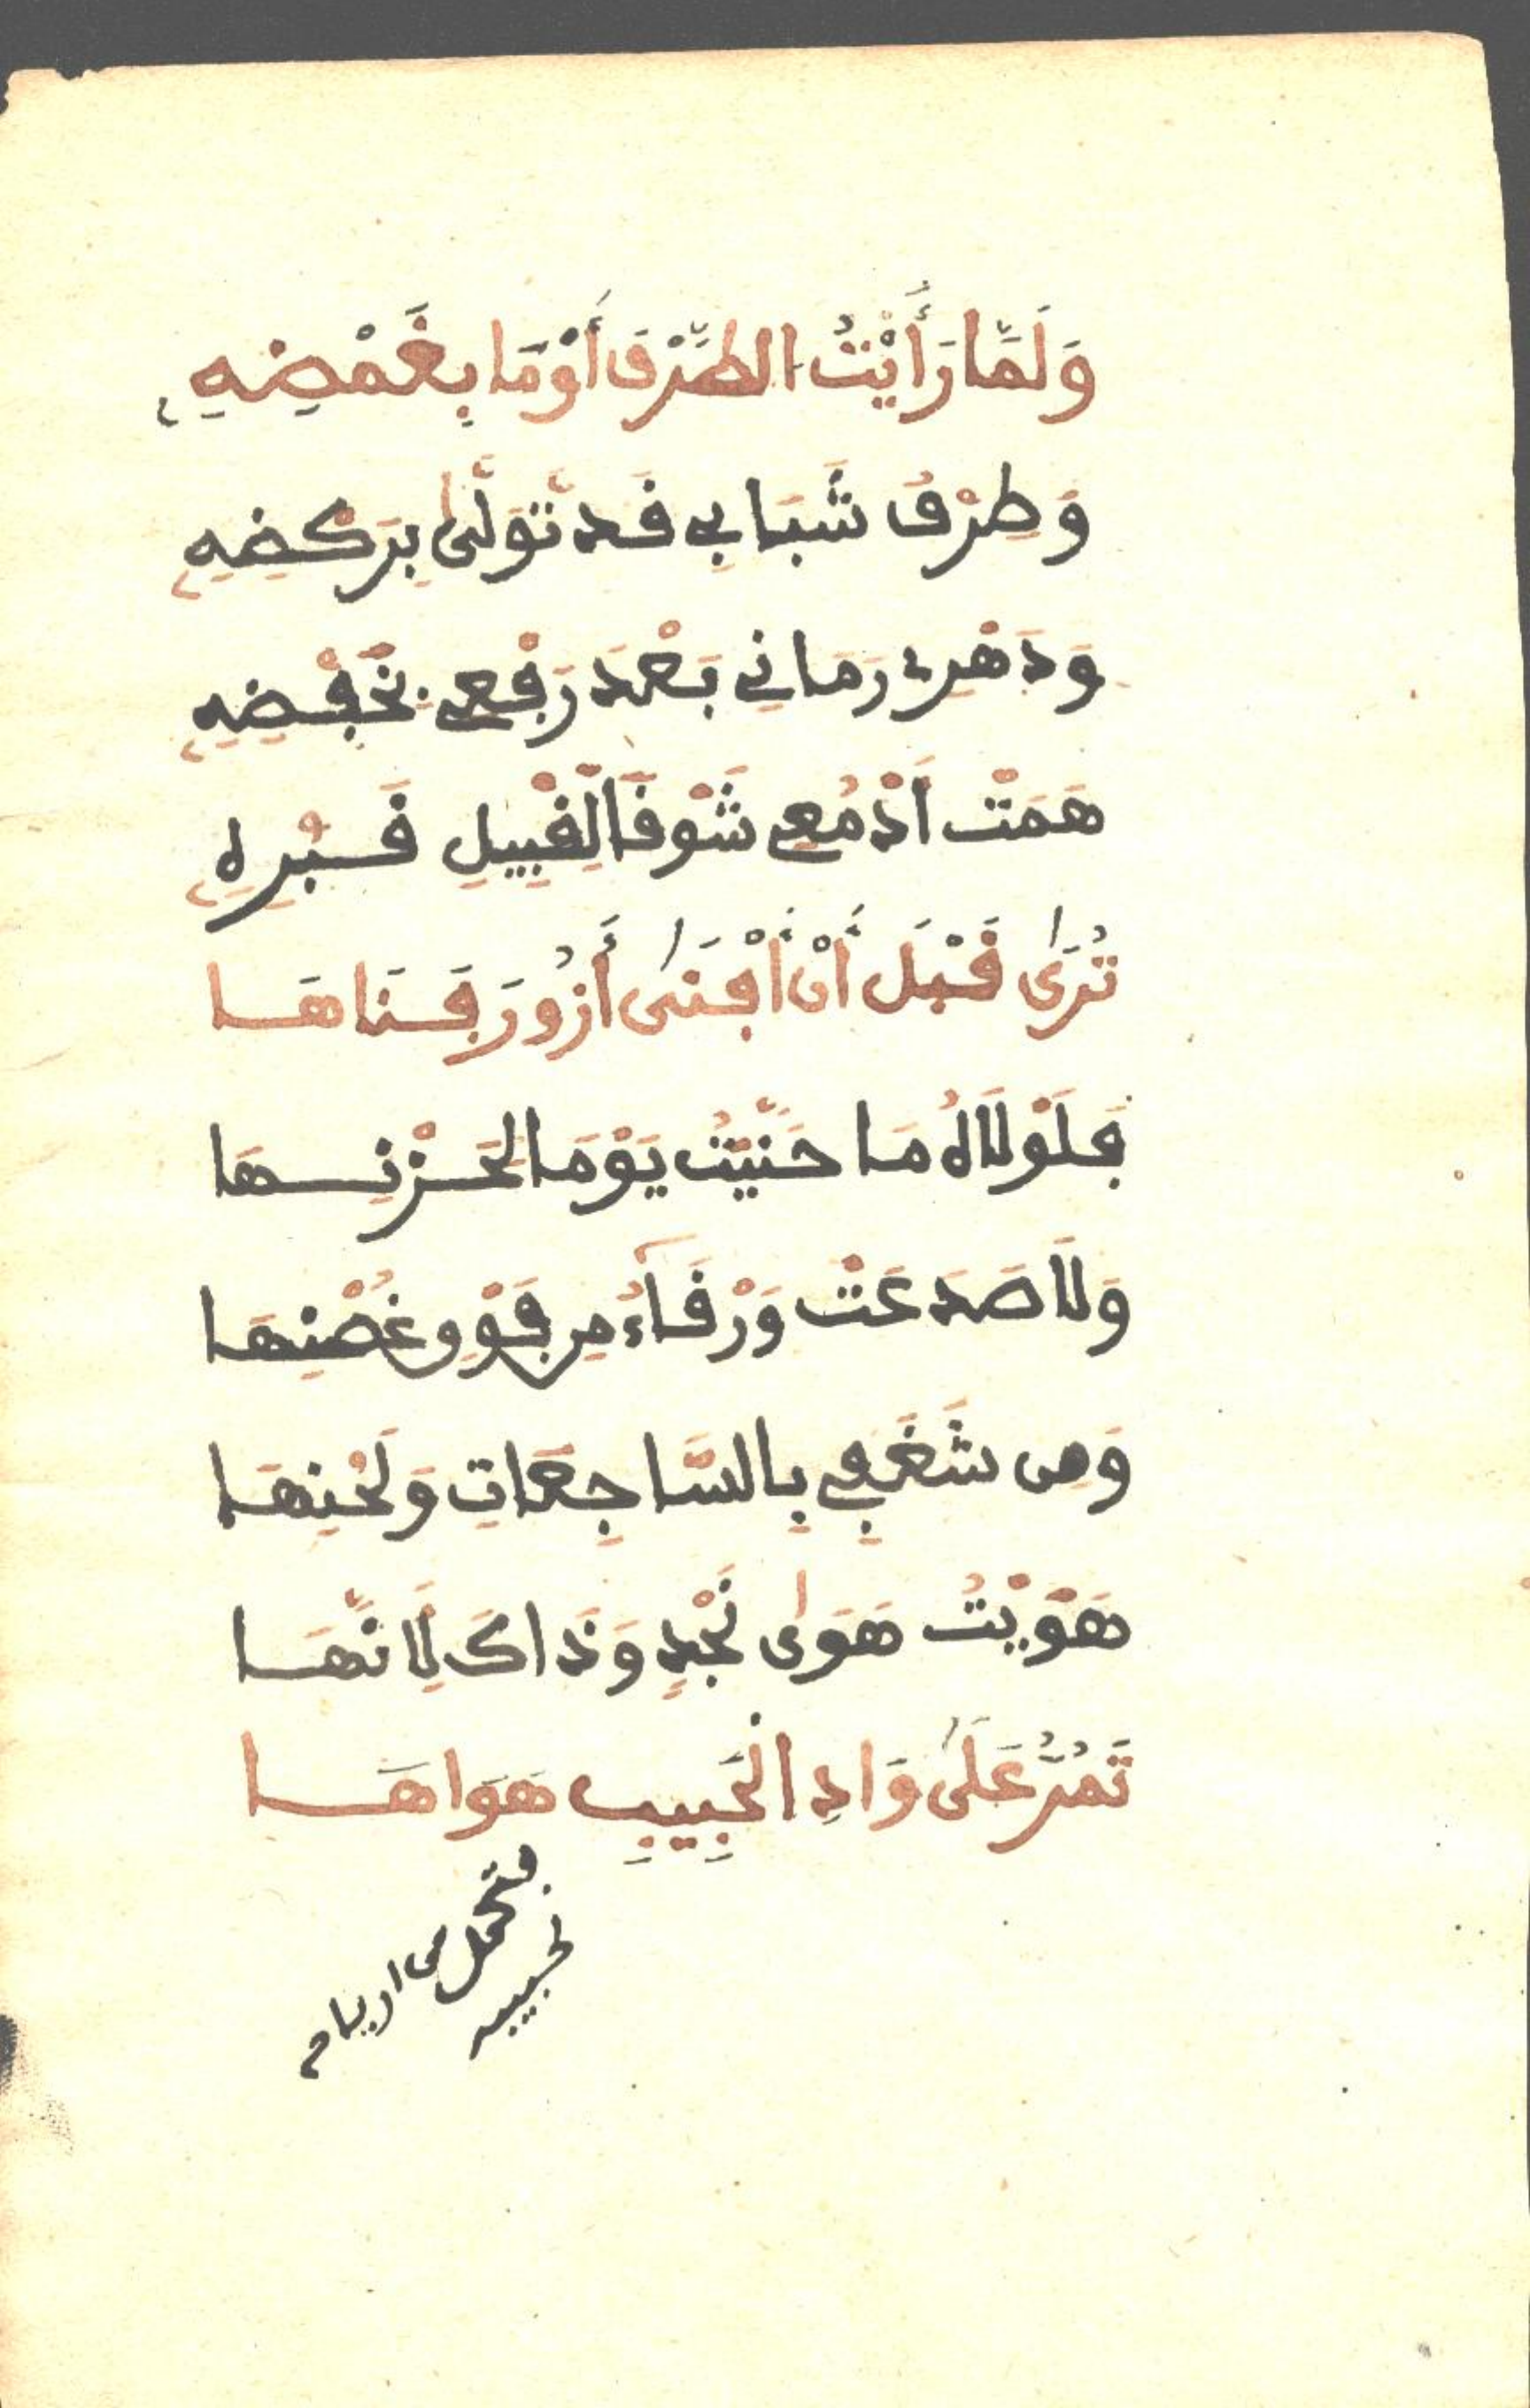 وَلَمَّا رَأَيْتُ الطَّرْفَ أَوْمَا بِغَمْضِهِ
وَطِرْفُ شَبَابِي قَد تَّوَلَّىٰ بِرَكْضِهِ
وَدَهْرِي رَمَانِي بَعْدَ رَفْعِي بِخَفْضِهِ
هَمَتْ أَدْمُعِي شَوْقًا لِتَقْبِيلِ
تُرَىٰ قَبْلَ أَنْ أَفْنَىٰ أَزُورَ فِنَاهَا
فَلَوْلَاهُ مَا حَنَّيْتُ يَوْمًا لِحَزْنِهَا
وَلَا صَدَعَتْ وَرْقَآءُ مِن فَوْقِ غُصْنِهَا
وَمِن شَغَفِي بِالسَّاجِعَاتِ وَلَحْنِهَا
هَوَيْتُ هَوَىٰ نَجْدٍ وَذَاكَ لِأَنَّهَا
تَمُرُّ عَلَىٰ وَادِ الْحَبِيبِ هَوَاهَا